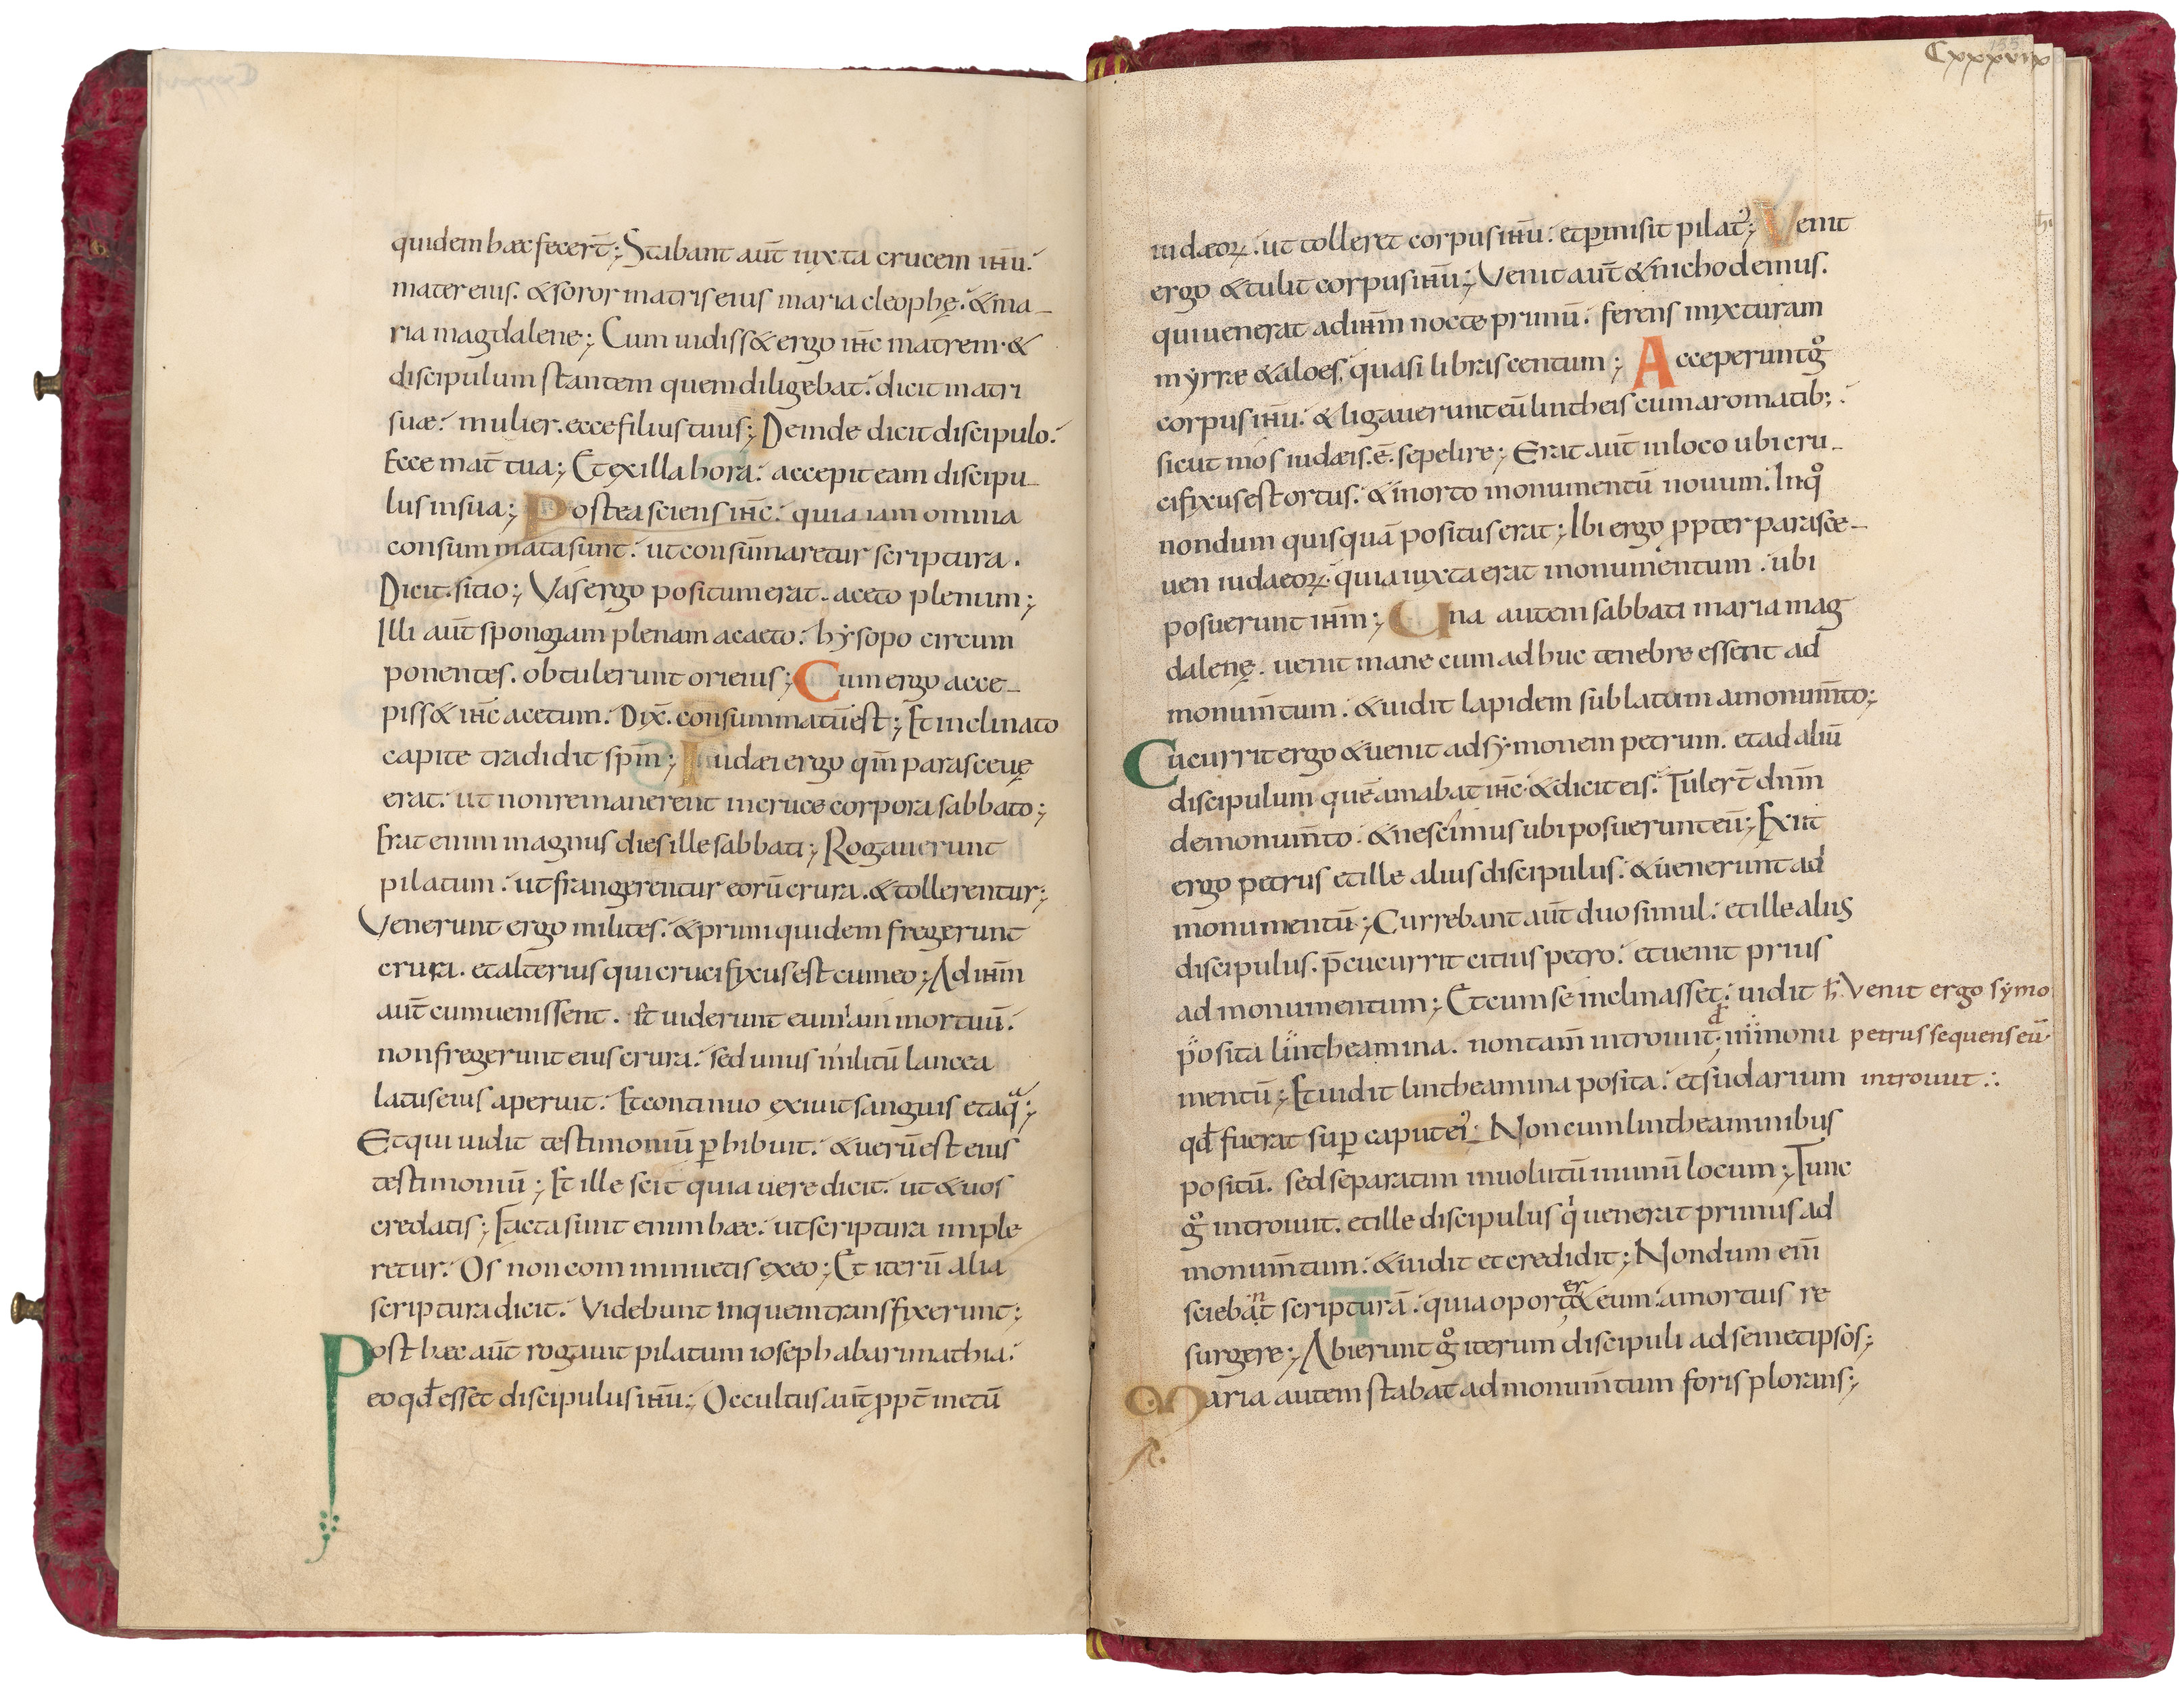 quidem hæc fecert̄; Stabant aut̄ iuxta crucem ihū.
mater eius. & soror matris eius maria cleophę. & ma-
ria magdalene; Cum uidiss& ergo ihc̄ matrem. &
discipulum stantem quem diligebat. dicit matri
suæ. mulier. ecce filius tuus; Deinde dicit discipulo.
Ecce mat̄ tua; Et ex illa hora. accepit eam discipu-
lus in sua; Postea sciens ihc̄. quia iam omnia
consummata sunt. ut consūmaretur scriptura.
Dicit. sitio; Vas ergo positum erat. aceto plenum;
Illi aut̄ spongiam plenam acaeto. hysopo circum
ponentes. obtulerunt ori eius; Cum ergo acce-
piss& ihc̄ acetum. Dix̄. consummatū est; Et inclinato
capite tradidit sp̄m; Iudæi ergo qm̄ parasceuę
erat. ut non remanerent in cruce corpora sabbato;
Erat enim magnus dies ille sabbati; Rogauerunt
pilatum. ut frangerentur eorū crura. & tollerentur;
Venerunt ergo milites. & primi quidem fregerunt
crura. et alterius qui crucifixus est cum eo; Ad ihm̄
aut̄ cum uenissent. et uiderunt eum iam mortuū.
non fregerunt eius crura. sed unus militū lancea
latus eius aperuit. Et continuo exiuit sanguis et aqͣ;
Et qui uidit testimoniū ꝑhibuit. & uerū est eius
testimoniū; Et ille scit quia uere dicit. ut & uos
credatis; Facta sunt enim hæc. ut scriptura imple
retur. Os non comminuetis ex eo; Et iterū alia
scriptura dicit. Videbunt in quem transfixerunt;
Post hæc aut̄ rogauit pilatum ioseph ab arimathia.
eo qd̄ esset discipulus ihū; Occultus aut̄ ppt̄ metū
Cxxxviix
155
iudæoꝝ. ut tolleret corpus ihū. et ꝑmisit pilat᾽; Venit
ergo & tulit corpus ihū; Venit aut̄ & nichodemus.
qui uenerat ad ihm̄ nocte primū. ferens mixturam
myrræ & aloes. quasi libras centum; Acceperunt gͦ
corpus ihū. & ligauerunt eū lintheis cum aromatib;.
sicut mos iudæis. ē. sepelire; Erat aut̄ in loco ubi cru-
cifixus est ortus. & in orto monumentū nouum. In qͦ
nondum quisquā positus erat; Ibi ergo ꝓpter parasce-
uen iudaeoꝝ. quia iuxta erat monumentum. ubi
posuerunt ihm̄; Una autem sabbati maria mag
dalenę. uenit mane cum adhuc tenebre essent ad
monum̄tum. & uidit lapidem sublatum a monum̄to;
Cucurrit ergo & uenit ad symonem petrum. et ad aliū
discipulum quē amabat ihc̄. & dicit eis. Tulert̄ dnm̄
de monum̄to. & nescimus ubi posuerunt eū; Exiit
ergo petrus et ille alius discipulus. & uenerunt ad
monumentū; Currebant aut̄ duo simul. et ille alius
discipulus. p̄cucurrit citius petro. et uenit prius
ad monumentum; Et cum se inclinasset. uidit h̄. Venit ergo symo
posita lintheamina. non tam̄ introiuit; d̄ in monu petrus sequens eū
mentū; Et uidit lintheamina posita. et sudarium introiuit.
qd̄ fuerat suꝑ caput ei᾽; Non cum lintheaminibus
positū. sed separatim inuolutū in unū locum; Tunc
gͦ introiuit. et ille discipulus qͥ uenerat primus ad
monum̄tum. & uidit et credidit; Nondum eni̅
sciebant̄ scripturā. quia oporter& eum. a mortuis re
surgere; Abierunt gͦ iterum discipuli ad semetipsos;
Maria autem stabat ad monum̄tum foris plorans;